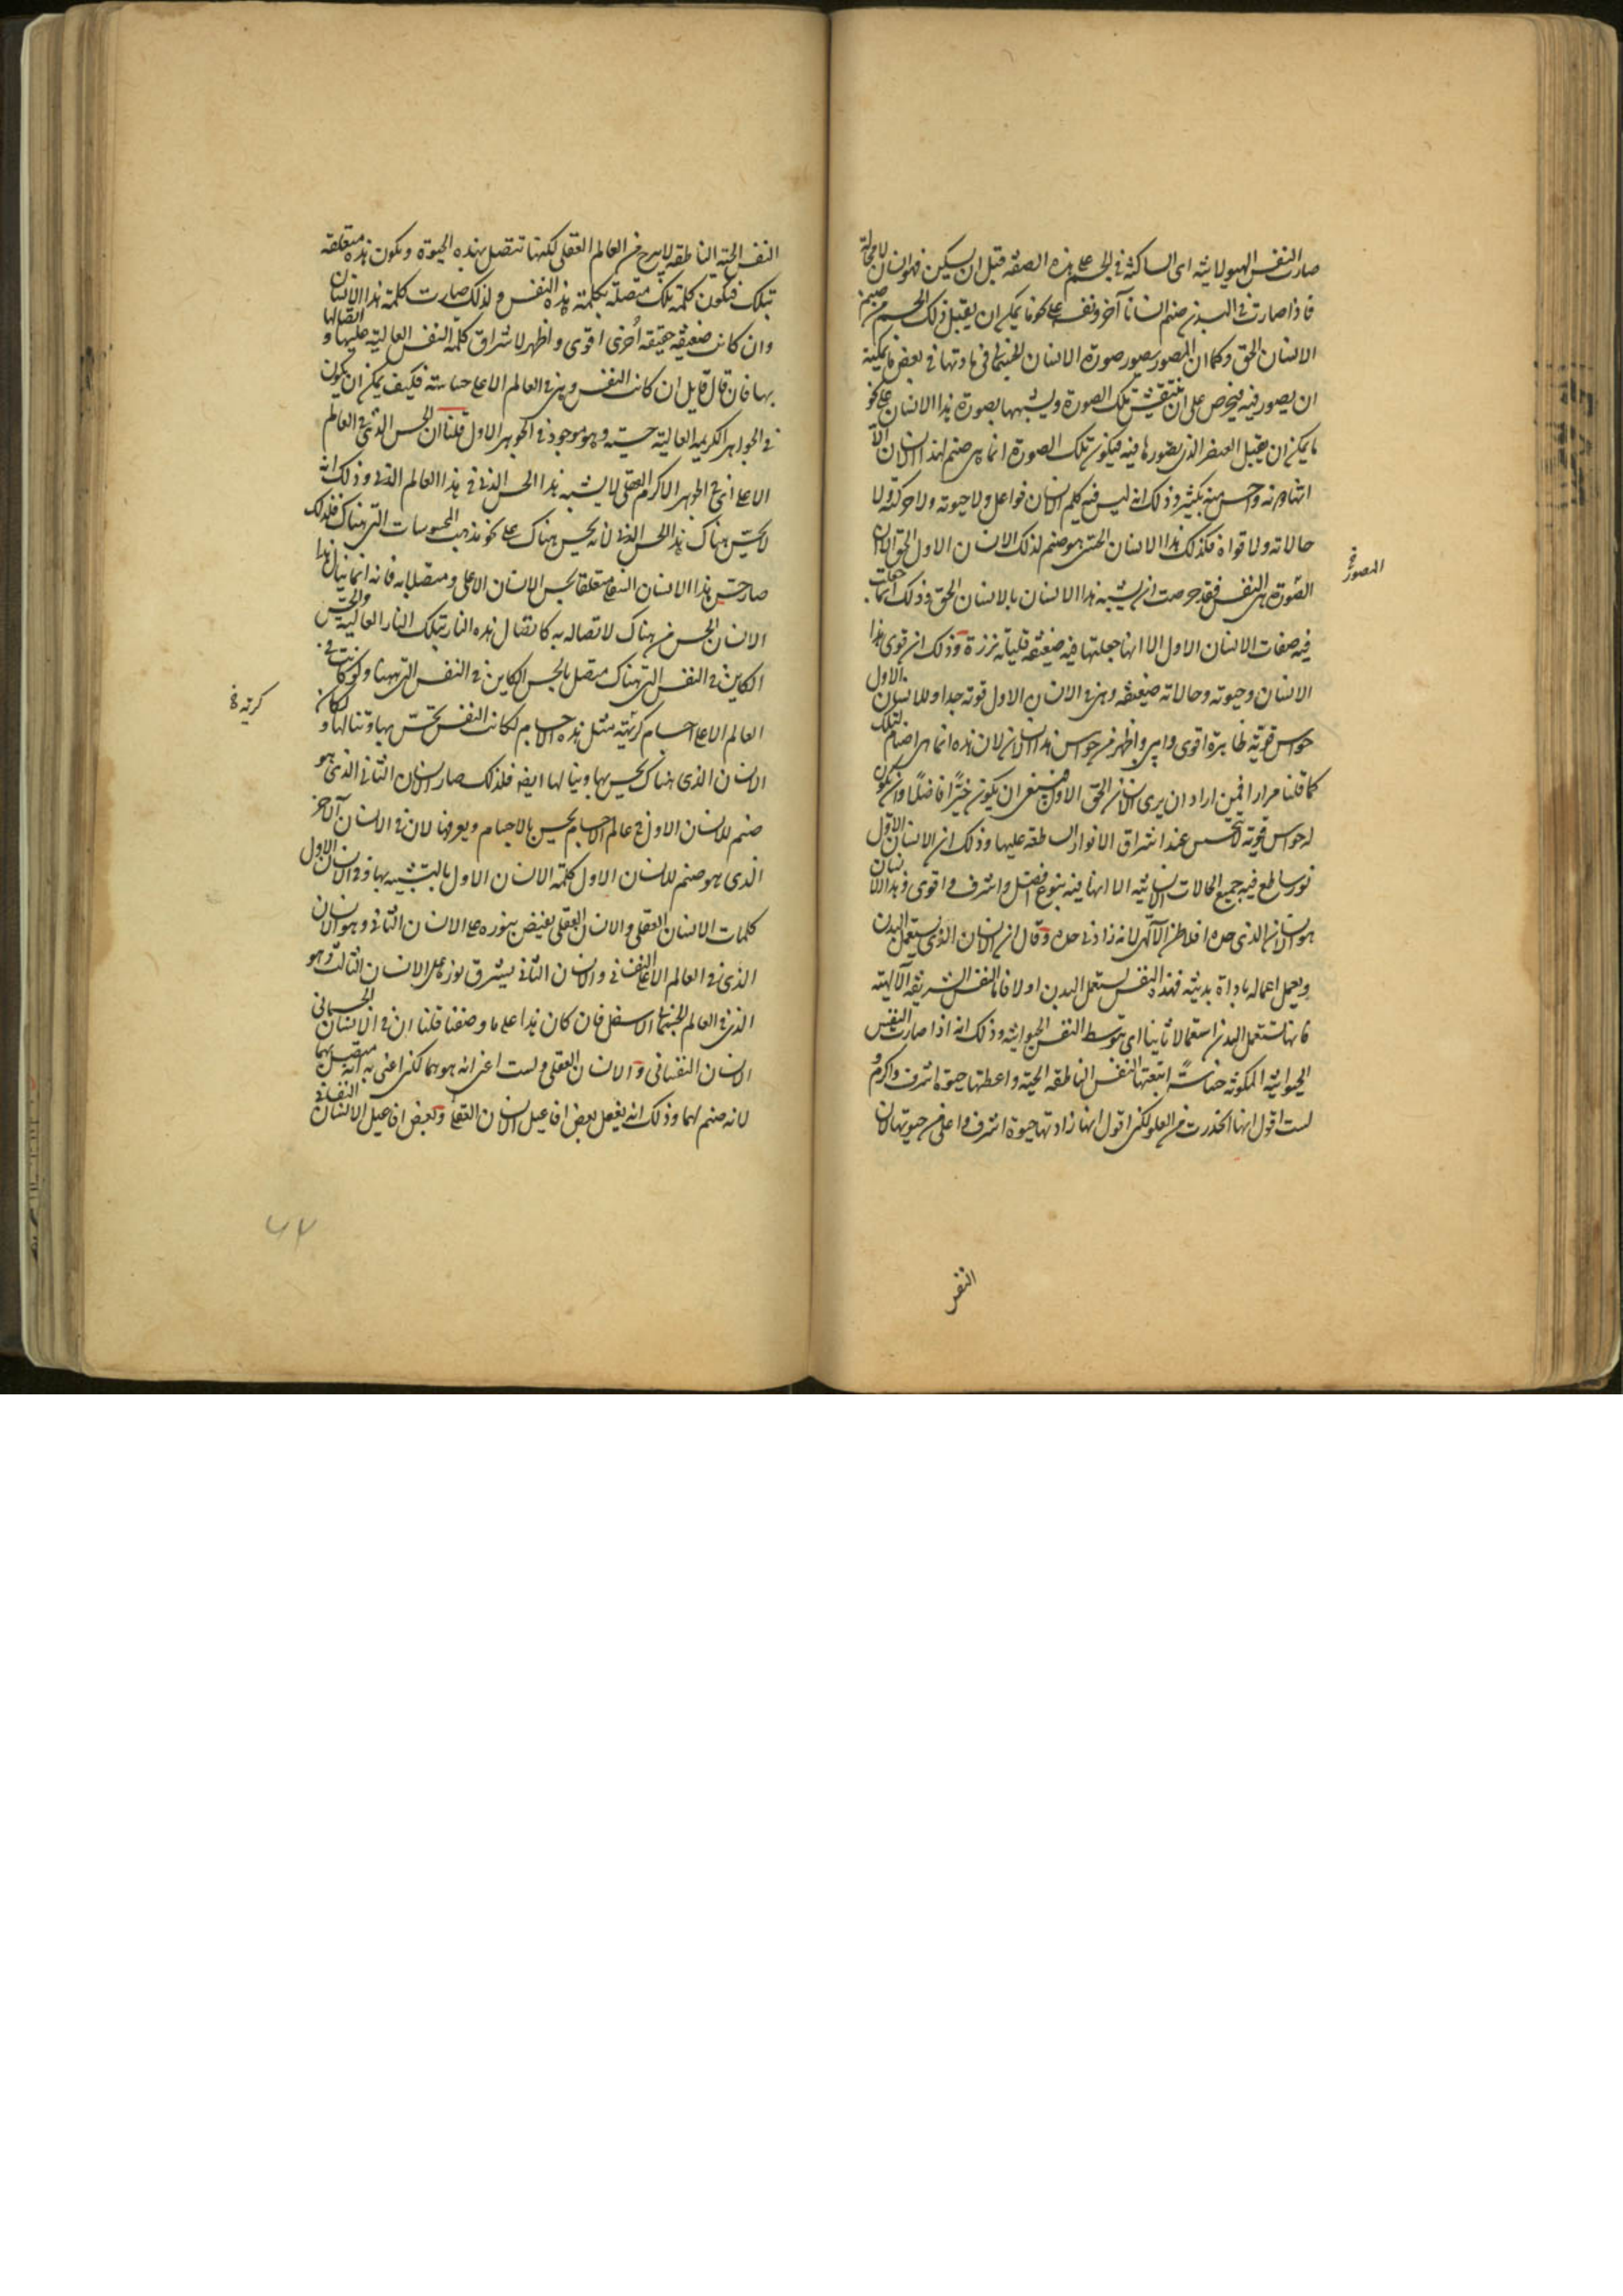 صارت النفس الهيولانية اى الساكنة فى الجسم على هذه الصفة قبل ان يسكن فهو انسان لا محالة
فاذا صارت فى البدن صنم انسانا آخر ونفسه على نحو ما يمكن ان يقبل ذلك الجسم من صنم
الانسان الحق وكما ان المصور يصور صورة الانسان الجسمانى فى مادتها فى بعض ما يمكنه
ان يصور فيه فيحرص على ان يتقن تلك الصورة ويشبهها بصورة هذا الانسان على نحو
ما يمكن ان يقبل العنصر الذى يصورها فيه فيكون تلك الصورة انما هى صنم لهذا الانسان الا
انها دونه واخس منه بكثير وذلك انه ليس فيه كلم الانسان فواعل ولا حيوته ولا حركته ولا
حالاته ولا قواه فكذلك هذا الانسان الحسى هو صنم لذلك الانسان الاول الحق الا ان
المصور
الصورة هى النفس فقد حرصت ان يشبه هذا الانسان بالانسان الحق وذلك انها جعلت
فيه صفات الانسان الاول الا انها جعلتها فيه ضعيفة قليلة نزرة وذلك ان قوى هذا
الانسان وحيوته وحالاته ضعيفة وهى فى الانسان الاول قوية جدا وللانسان الاول
حواس قوية ظاهرة اقوى وابين واظهر من حواس هذا الانسان لان هذه انما هى اصنام لتلك
كما قلنا مرارا فمن اراد ان يرى الانسان الحق الاول فينبغى ان يكون خيّرا فاضلا وان يكون
له حواس قوية لا تنحبس عند اشراق الانوار الساطعة عليها وذلك ان الانسان الاول
نور ساطع فيه جميع الحالات الانسانية الا انها فيه بنوع افضل واشرف واقوى وهذا الانسان
هو الانسان الذى حده افلاطن الالهى لانه زاد فى حده وقال ان الانسان الذى يستعمل البدن
ويعمل اعماله باداة بدنية فهذه النفس تستعمل البدن اولا فاما النفس الشريفة الالهية
فانها تستعمل البدن استعمالا ثانيا اى بتوسط النفس الحيوانية وذلك انه اذا صارت النفس
الحيوانية المكونة حساسة اتبعتها النفس الناطقة الحية واعطتها حيوة اشرف واكرم و
لست اقول انها انحدرت من العلو لكنى اقول انها زادتها حيوة اشرف واعلى من حيوتها لان
النفس
النفس الحية الناطقة لا تبرح من العالم العقلى لكنها تتصل بهذه الحيوة ويكون هذه متعلقة
بتلك فيكون كلمة تلك متصلة بكلمة هذه النفس ولذلك صارت كلمة هذا الانسان
وان كانت ضعيفة خفيفة اُخرى اقوى واظهر لاشراق كلمة النفس العالية عليها و اتصالها
بها فان قال قايل ان كانت النفس وهى فى العالم الاعلى حساسة فكيف يمكن ان يكون
فى الجواهر الكريمة العالية حسية وهو موجود فى الجوهر الاول قلنا ان الحس الذى فى العالم
الاعلى اى فى الجوهر الاكرم العقلى لا يشبه هذا الحس الذى فى هذا العالم الدنى وذلك انه
لا يحس هناك هذا الحس الدنى لانه يحس هناك على نحو مذهب المحسوسات التى هناك فلذلك
صار حس هذا الانسان السفلى متعلقا بحس الانسان الاعلى ومتصلا به فانه انما ينال هذا
الانسان الحس من هناك لاتصاله به كاتصال هذه النار بتلك النار العالية والحس
الكاين فى النفس التى هناك متصل بالحس الكاين فى النفس التى ههنا ولو كانت فى
كرية
العالم الاعلى اجسام كرية مثل هذه الاجسام لكانت النفس تحس بها وتنالها و لكان
الانسان الذى هناك يحس بها وينالها ايضا فلذلك صار الانسان الثانى الذى هو
صنم للانسان الاول فى عالم الاجسام يحس بالاجسام ويعرفها لان فى الانسان الآخر
الذى هو صنم للانسان الاول كلمة الانسان الاول بالتشبيه بها وفى الانسان الاول
كلمات الانسان العقلى والانسان العقلى يفيض بنوره على الانسان الثانى وهو الانسان
الذى فى العالم الاعلى النفسانى والانسان الثانى يشرق نوره على الانسان الثالث وهو
الذى فى العالم الجسمانى الاسفل فان كان هذا على ما وصفنا قلنا ان فى الانسان الجسمانى
الانسان النفسانى والانسان العقلى ولست اعنى انه هو هما لكنى اعنى به انه متصل بهما
لانه صنم لهما وذلك انه يفعل بعض افاعيل الانسان العقلى وبعض افاعيل الانسان النفسانى